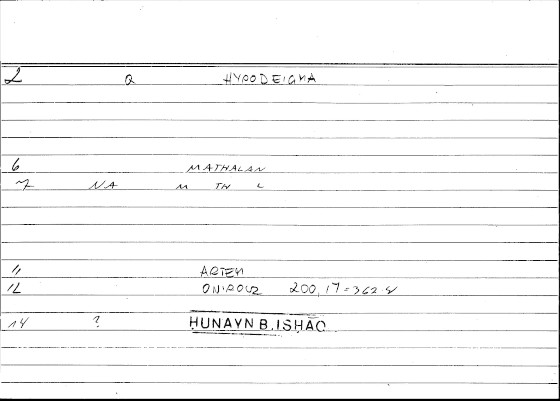 2 Q HYPODEIGMA
6 MATHALAN
7 NA M TH L
11 ARTEM
12 ONIROCR 200,17=362.8
14 ? ḤUNAYN B.ISḤĀQ